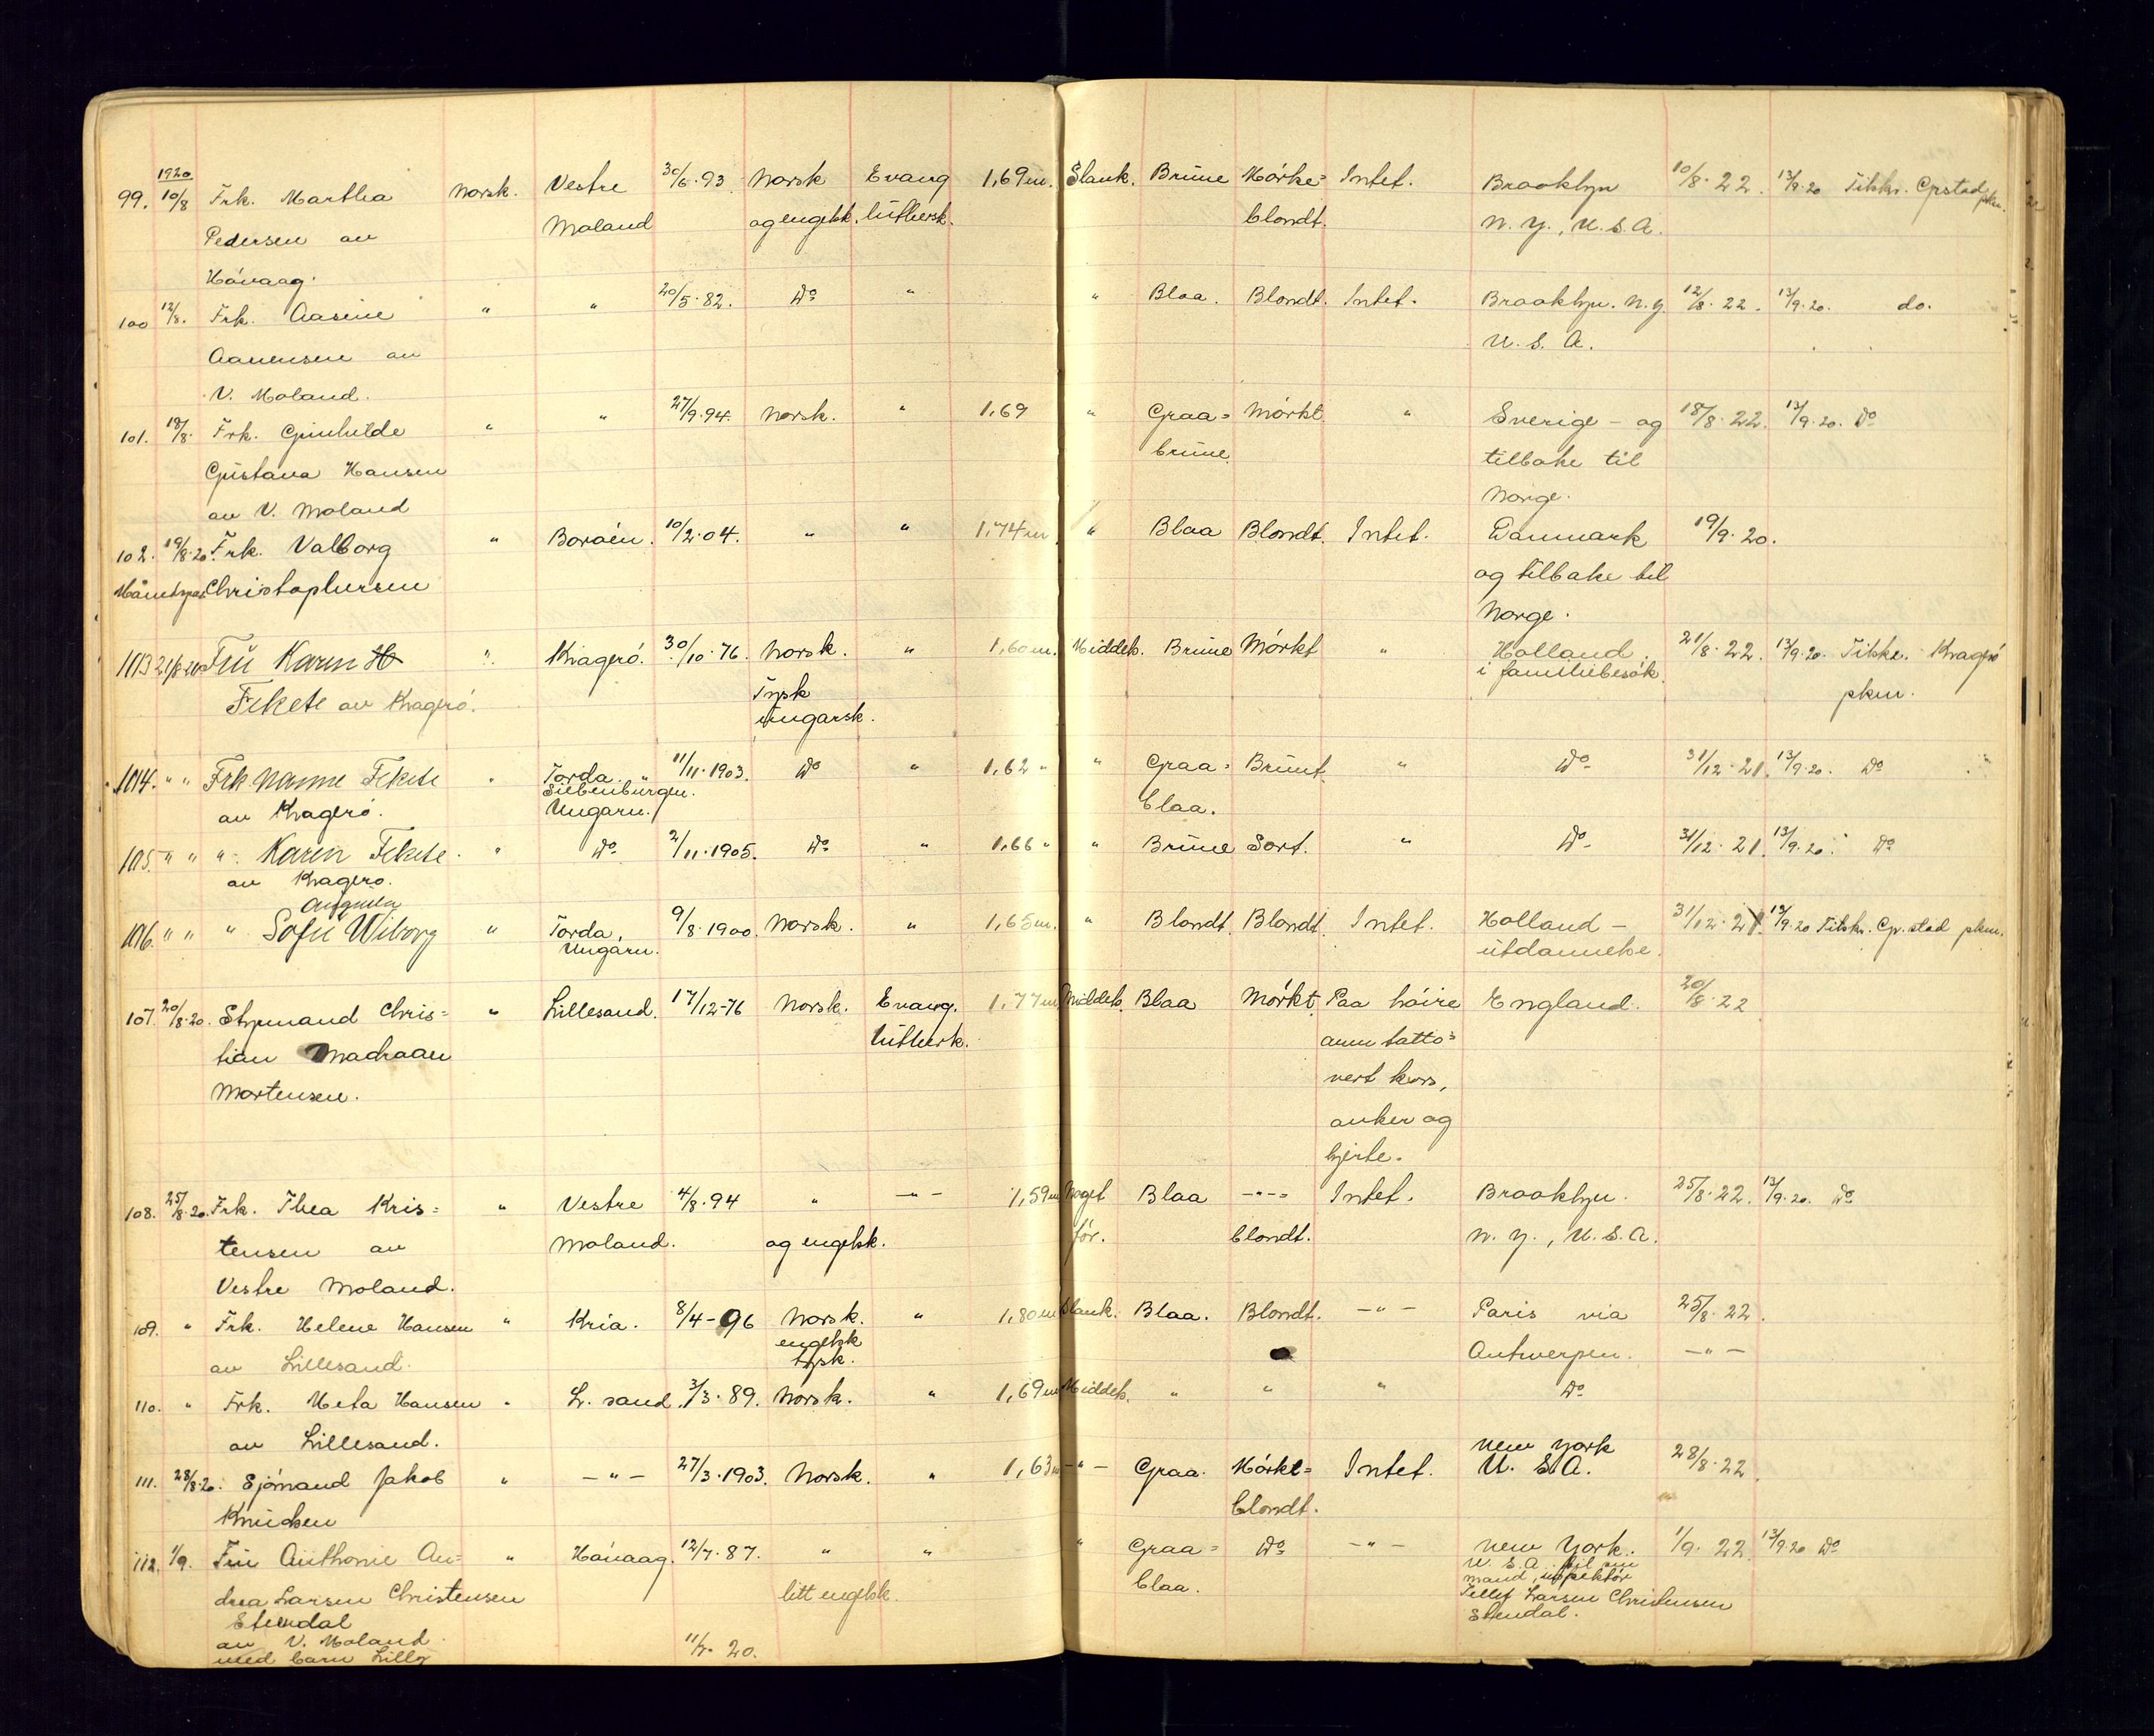 1920
99. 10/8 Frk. Martha Norsk. Vestre 30/6.93 Norsk Evang 1,69 m. Slank. Brune Mörke= Intet. Brooklyn 10/8.22. 13/9.20 Tilskr. Gr.stad pkm.
Pedersen av Moland og engelsk. luthersk. blondt. N. Y., U. S. A.
Håvaag.
100 12/8. Frk. Aasine " " 20/5.82. Do " " Blaa. Blondt. Intet. Brooklyn. N.Y. 12/8.22. 13/9.20. do.
Aanensen av U. S. A.
V. Moland.
101. 18/8. Frk. Gunhilde " " 27/9.94. Norsk. " 1,69 " Graa= Mörkt. " Sverige - og 18/8.22. 13/9.20. Do
Gustava Hansen brune tilbake til
av V. Moland Norge.
102. 19/8.20. Frk. Valborg " Boröen. 10/2.04. " " 1,74 m " Blaa Blondt. Intet. Danmark 19/9.20.
Månedspas. Christophersen og tilbake til
Norge.
103 21/8 20 Fru Karen H " Kragerö. 30/10.76. Norsk. " 1,60 m. Middels. Brune Mörkt " Holland. 21/8.22. 13/9.20. Tilskr. Kragerö
Fekete av Kragerö. Tysk i familiebesök. pkm.
ungarsk.
104. " " Frk Nanne Fekete " Torda. " 11/11.1903. Do " 1,62 " " Graa= Brunt " Do 31/12.21. 13/9.20. Do
av Kragerö. Siebenburgen. blaa.
Ungarn.
105. " " " Karen Fekete. " Do. 2/11.1905. Do " 1,66 " " Brune Sort. " Do 31/12.21. 13/9.20. Do
av Kragerö.
106. " " " Sofie Wiborg " Torda, 9/8.1900. Norsk. " 1,65 m. " Blondt. Blondt. Intet. Holland - 31/12.21. 13/9.20 Tilskr. Gr.stad pkm.
Ungarn. utdannelse.
107. 20/8.20. Styrmand Chris= " Lillesand. 17/12-76 Norsk. Evang. 1,77 m Middels. Blaa Mörkt. Paa höire England. 20/8.22
tian Madraan luthersk. arm tatto=
Mortensen. vert kors,
anker og
hjerte.
108. 25/8.20. Frk. Thea Kris= " Vestre 4/8.94 " -"- 1,59 m Noget Blaa -"-= Intet. Brooklyn. 25/8.22. 13/9.20. Do
tensen av Moland. og engelsk. för. blondt. N. Y., U. S. A.
Vestre Moland.
109. " Frk. Helene Hansen " Kria. 8/4-96 Norsk. " 1,80 m Slank. Blaa. Blondt. -"- Paris via 25/8.22.
av Lillesand. engelsk Antwerpen. -"-
tysk.
110. " Frk. Meta Hansen " L. sand. 3/3.89. Norsk. " 1,69 m Middels. " " " Do
av Lillesand.
New York
111. 28/8.20. Sjömand Jakob " -"- 27/3.1903. Norsk. " 1,63 m -"- Graa. Mörke= Intet. U. S. A. 28/8.22.
Knudsen blondt.
112. 1/9. Fru Anthonie An= " Håvaag. 12/7.87. " " " Graa= Do -"- New York. 1/9.22. 13/9.20 Do
drea Larsen Christensen litt engelsk. blaa. U. S. A. til sin
Stendal mand, inspektör
av V. Moland Tellef Larsen Christensen
med barn Lilly 11/7.20. Stendal.